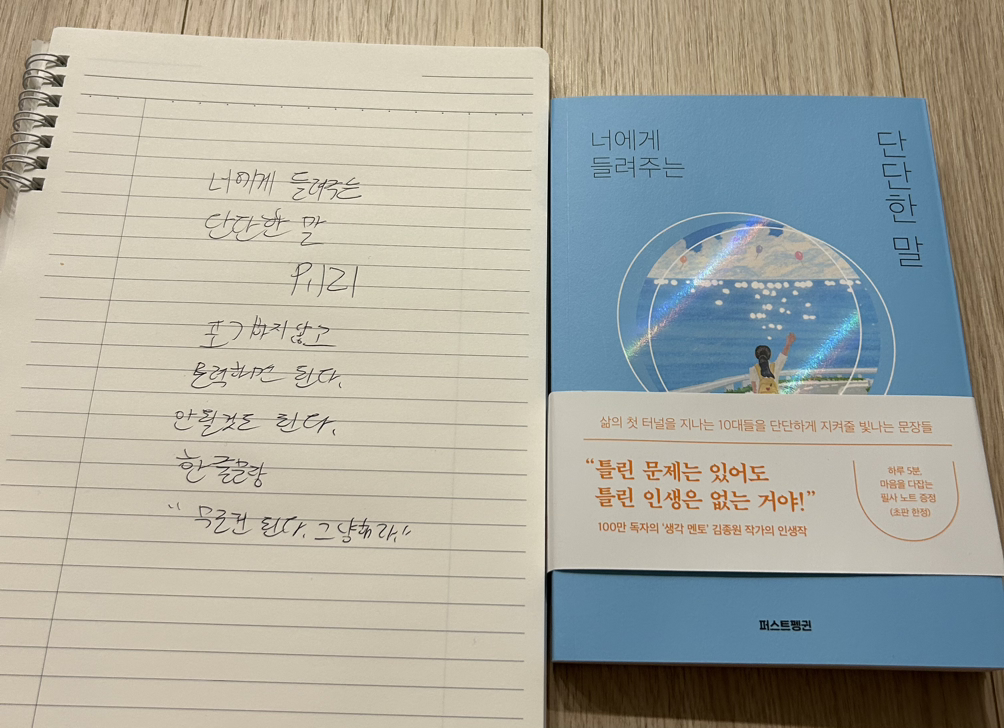 너에게 들려주는
단단한 말
P.121
포기하지 않고
노력하면 된다.
안될것도 된다.
한글사랑
"무조건 된다. 그냥해라."
너에게
들려주는
단단한 말
삶의 첫 터널을 지나는 10대들을 단단하게 지켜줄 빛나는 문장들
"틀린 문제는 있어도
틀린 인생은 없는 거야!"
100만 독자의 '생각 멘토' 김종원 작가의 인생작
하루 5분,
마음을 다잡는
필사 노트 증정
(초판 한정)
퍼스트펭귄